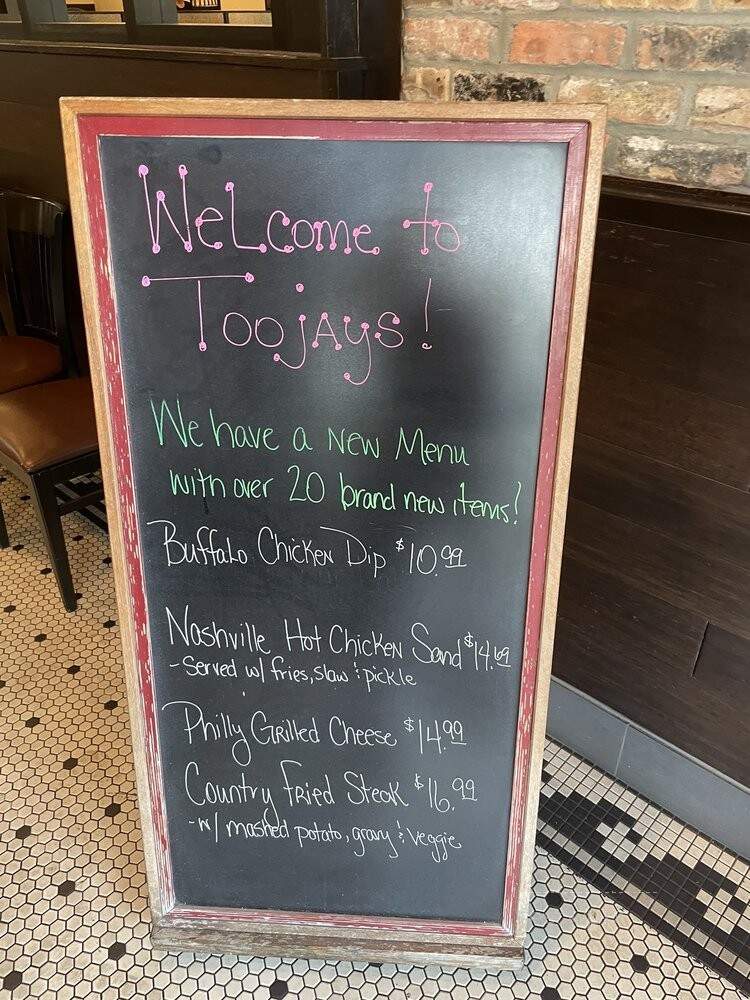 Welcome to
Toojays!
We have a New Menu
with over 20 brand new items!
Buffalo Chicken Dip $10.99
Nashville Hot Chicken Sand $14.69
-Served w/ fries, slaw & pickle
Philly Grilled Cheese $14.99
Country Fried Steak $16.99
-w/ mashed potato, gravy & veggie